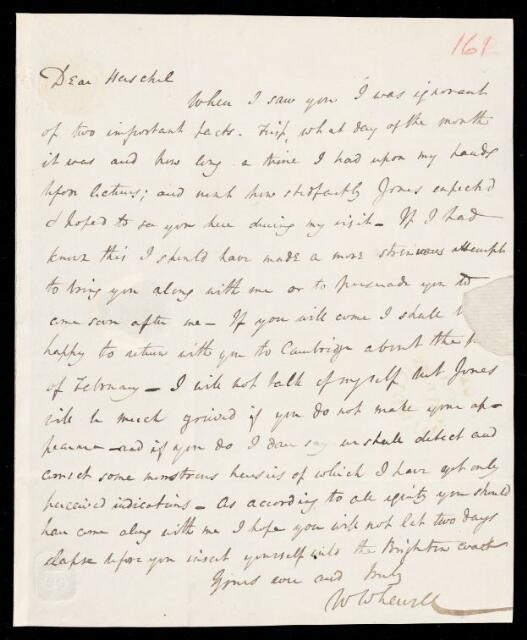 161
Dear Herschel
When I saw you I was ignorant
of two important facts. First, what day of the month
it was and how long a time I had upon my hands
before lectures; and next how stedfastly Jones expected
& hoped to see you here during my visit - If I had
known this I should have made a more strenuous attempt
to bring you along with me or to persuade you to
come soon after me - If you will come I shall
happy to return with you to Cambridge about the
of February - I will not talk of myself but Jones
will be much grieved if you do not make your ap-
pearance - and if you do I dare say we shall detect and
correct some monstrous heresies of which I have yet only
perceived indications - As according to all equity you should
have come along with me I hope you will not let two days
elapse before you insert yourself into the Brighton coach
Yours ever and truly
W Whewell